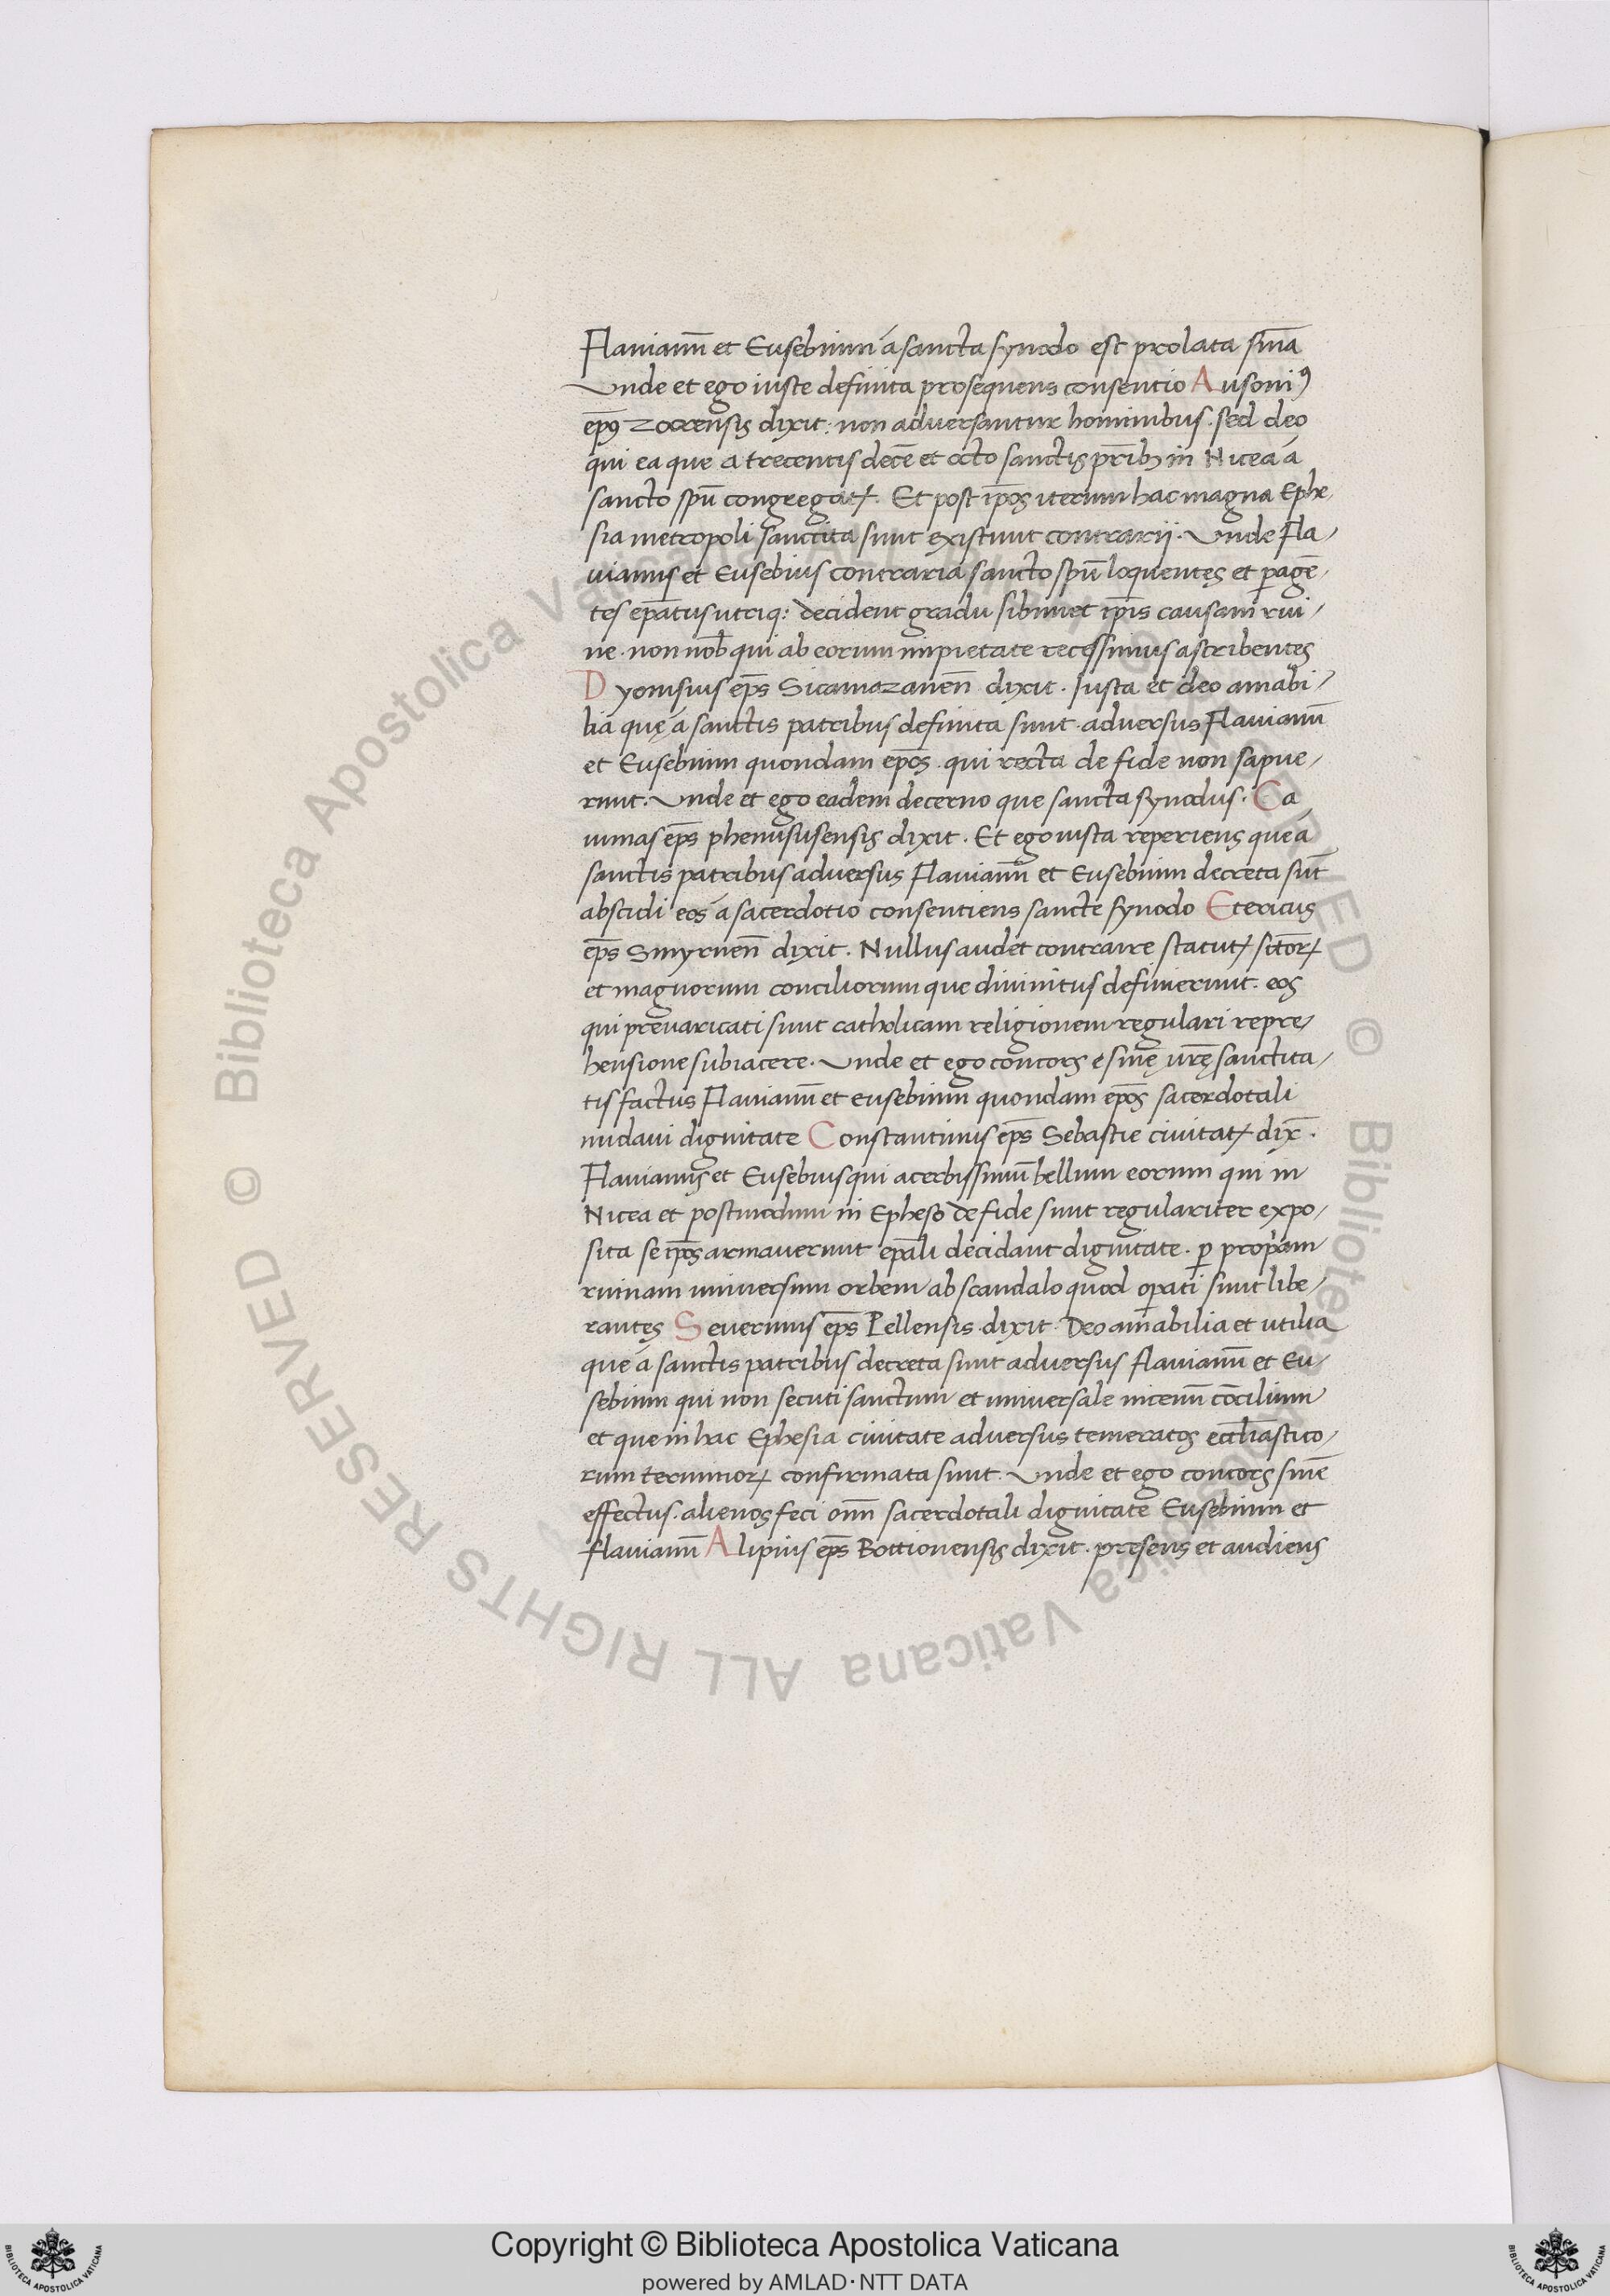 Flauianū et Eusebium á sancta synodo est prolata sn̄ia
Unde et ego iuste definita prosequens consentio Ausoniꝰ
ep̄s Zorensis dixit: non adversantur hominibus. sed deo
qui ea que a trecentis decē et octo sanctis pr̄ibꝫ in Nicea á
sancto spū congregatꝭ. Et post ip̄os iterum hac magna Ephe/
sia metropoli sanccita sunt existunt contrarij. Unde Fla/
uianus et Eusebius contraria sancto spū loquentes et ꝑagē/
tes ep̄atus utriqꝫ: decident gradu sibimet ip̄is causam rui/
ne. non nob̄ qui ab eorum impietate recessimus ascribentes
Dyonisius ep̄s Sicamazanen̄ dixit. Justa et deo amabi/
lia quę á sanctis patribus definita sunt. adversus Flauianū
et Eusebium quondam ep̄os. qui recta de fide non sapue/
runt. Unde et ego eadem decerno que sancta synodus. Ca
iumas ep̄s phenususensis dixit. Et ego iusta reperiens que á
sanctis patribus adversus Flauianū et Eusebium decreta sūt
abscidi eos á sacerdotio consentiens sancte synodo Etericus
ep̄s Smyrnen̄ dixit. Nullus audet contraire statutꝭ sc̄torꝝ
et magnorum conciliorum que divinitus definierunt. eos
qui prevaricati sunt catholicam religionem regulari repre/
hensione subiacere. Unde et ego concors snīę vr̄ę sanctita/
tis factus Flauianū et eusebium quondam ep̄os sacerdotali
nudavi dignitate Constantinus ep̄s Sebastie civitatꝭ dix̄.
Flauianus et Eusebius qui acerbissimū bellum eorum qui in
Nicea et postmodum in Epheso de fide sunt regulariter expo/
sita se ip̄os armaverunt ep̄ali decidant dignitate. ꝑ propriam
ruinam universum orbem ab scandalo quod oꝑati sunt libe/
rantes Severinus ep̄s Pellensis dixit. Deo amabilia et utilia
que á sanctis patribus decreta sunt adversus flauianū et Eu/
sebium qui non secuti sanctum et universale nicenū cōcilium
et que in hac Ephesia civitate adversus temeratos eccl̄iastico/
rum terminorꝝ confirmata sunt. Unde et ego concors sn̄ie
effectus. alienos feci omnī sacerdotali dignitate Eusebium et
flauianū Alipius ep̄s Bottionensis dixit. presens et audiens
Copyright © Biblioteca Apostolica Vaticana
powered by AMLAD·NTT DATA